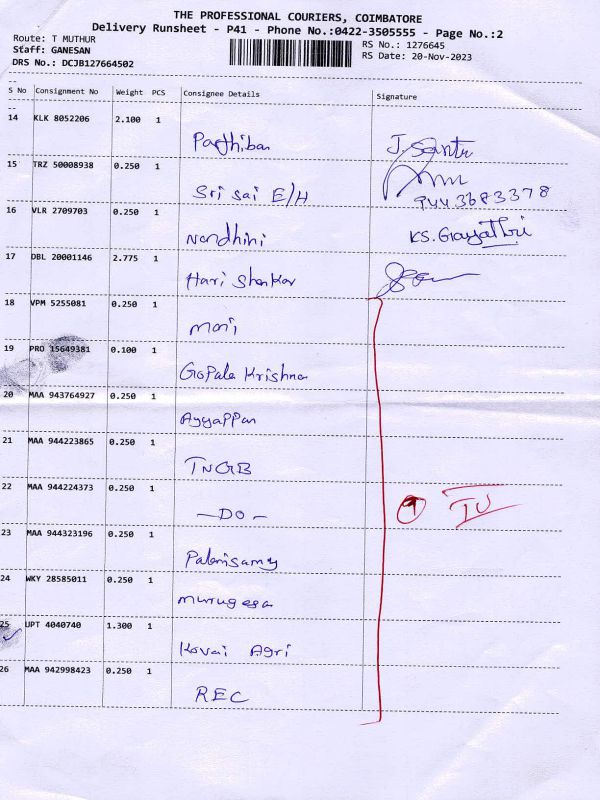 THE PROFESSIONAL COURIERS, COIMBATORE
Delivery Runsheet - P41 - Phone No.:0422-3505555 - Page No.:2
Route: T MUTHUR
RS No.: 1276645
Staff: GANESAN
RS Date: 20-Nov-2023
DRS No.: DCJB127664502
S No Consignment No Weight PCS Consignee Details Signature
14 KLK 8052206 2.100 1
Parthiban J. Santu
15 TRZ 50008938 0.250 1
Sri Sai E/H 9443683378
16 VLR 2709703 0.250 1
Nandhini KS. Gayathri
17 DBL 20001146 2.775 1
Hari Shankar
18 VPM 5255081 0.250 1
Mani
19 PRO 15649381 0.100 1
Gopala Krishna
20 MAA 943764927 0.250 1
Ayyappan
21 MAA 944223865 0.250 1
TNGB
22 MAA 944224373 0.250 1
- DO -
23 MAA 944323196 0.250 1
Palanisamy
24 WKY 28585011 0.250 1
Murugesa
25 UPT 4040740 1.300 1
Kovai Agri
26 MAA 942998423 0.250 1
REC